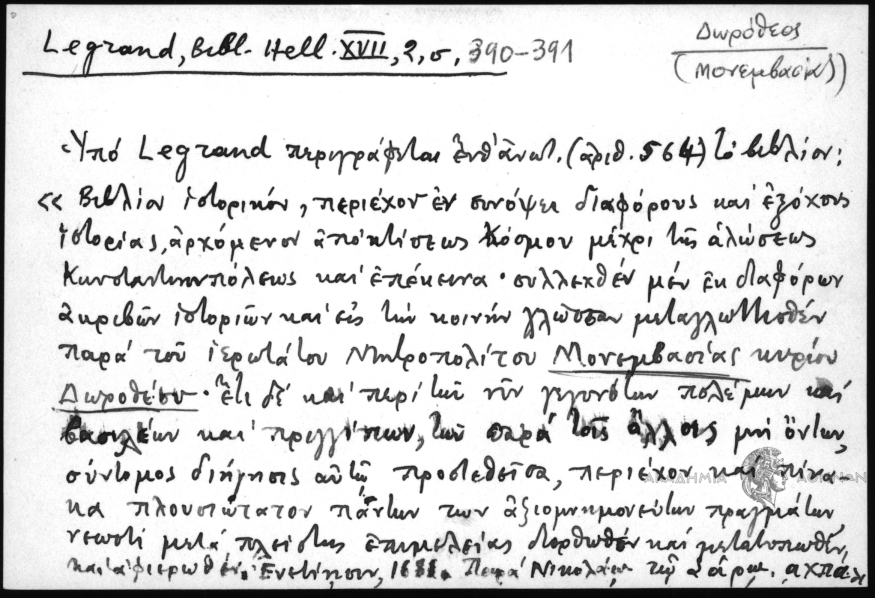 Legrand, Bibl. Hell. XVII, 2, σ, 390-391
Δωρόθεος
(Μονεμβασίας)
Ὑπό Legrand περιγράφεται ἐνθ' ἀνωτ. (ἀριθ. 564) τό βιβλίον:
« Βιβλίον ἱστορικόν, περιέχον ἐν συνόψει διαφόρους καί ἐξόχους
ἱστορίας, ἀρχόμενον ἀπό κτίσεως Κόσμου μέχρι τῆς ἁλώσεως
Κωνσταντινουπόλεως καί ἐπέκεινα · συλλεχθέν μέν ἐκ διαφόρων
ἀκριβῶν ἱστοριῶν καί εἰς τήν κοινήν γλῶσσαν μεταγλωττισθέν
παρά τοῦ ἱερωτάτου Μητροπολίτου Μονεμβασίας κυρίου
Δωροθέου · ἔτι δέ καί περί τῶν νῦν γεγονότων πολέμων καί
βασιλέων καί πριγγίπων, τῶν παρά τοῖς ἄλλοις μή ὄντων,
σύντομος διήγησις αὐτῷ προστεθεῖσα, περιέχον καί πίνα-
κα πλουσιώτατον πάντων των ἀξιομνημονεύτων πραγμάτων
νεωστί μετά πλείστης ἐπιμελείας διορθωθέν καί μετατυπωθέν,
καί ἀφιερωθέν. Ἐνετίησιν, Παρά Νικολάῳ τῷ Σάρῳ.
ΑΚΑΔΗΜΙΑ ΑΘΗΝΩΝ